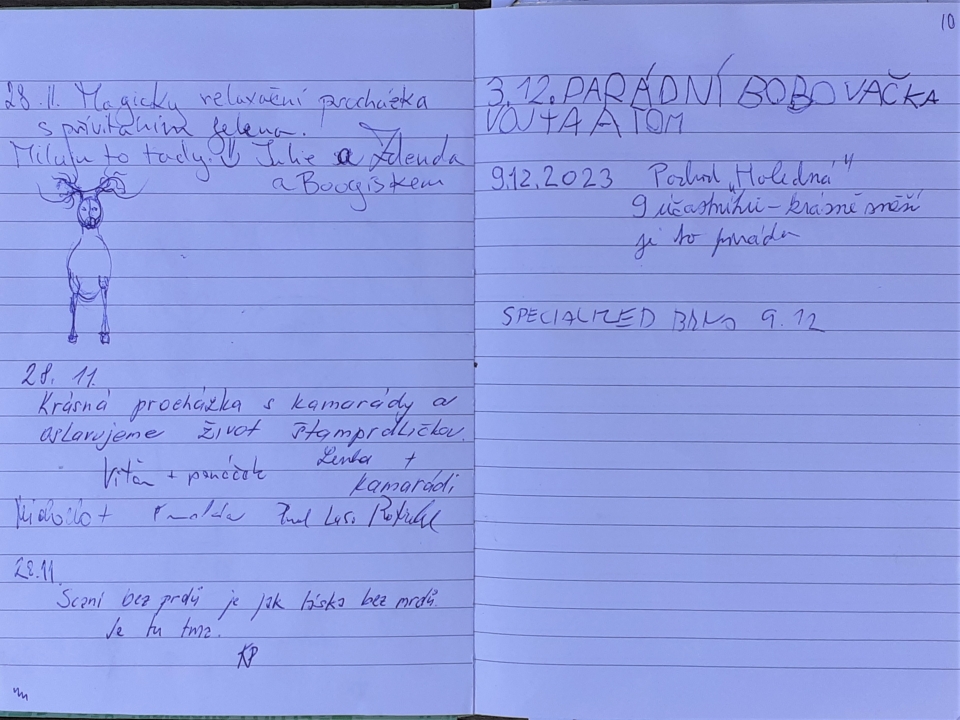 28.11. Magicky relaxační procházka
s přivítáním jelena.
Miluju to tady. Julie a Zdenda
a Boogískem
28. 11.
Krásná procházka s kamarády a
oslavujeme život štamprdličkou.
Lenka +
kamarádi
28.11.
Scaní bez prdů je jak láska bez mrdů.
Je tu tma.
KP
10
3.12. PARÁDNÍ BOBOVAČKA
VOJTA A TOM
9.12.2023 Pochod „Holedná"
9 účastníků – krásně sněží
je to paráda
SPECIALIZED BRNO 9.12